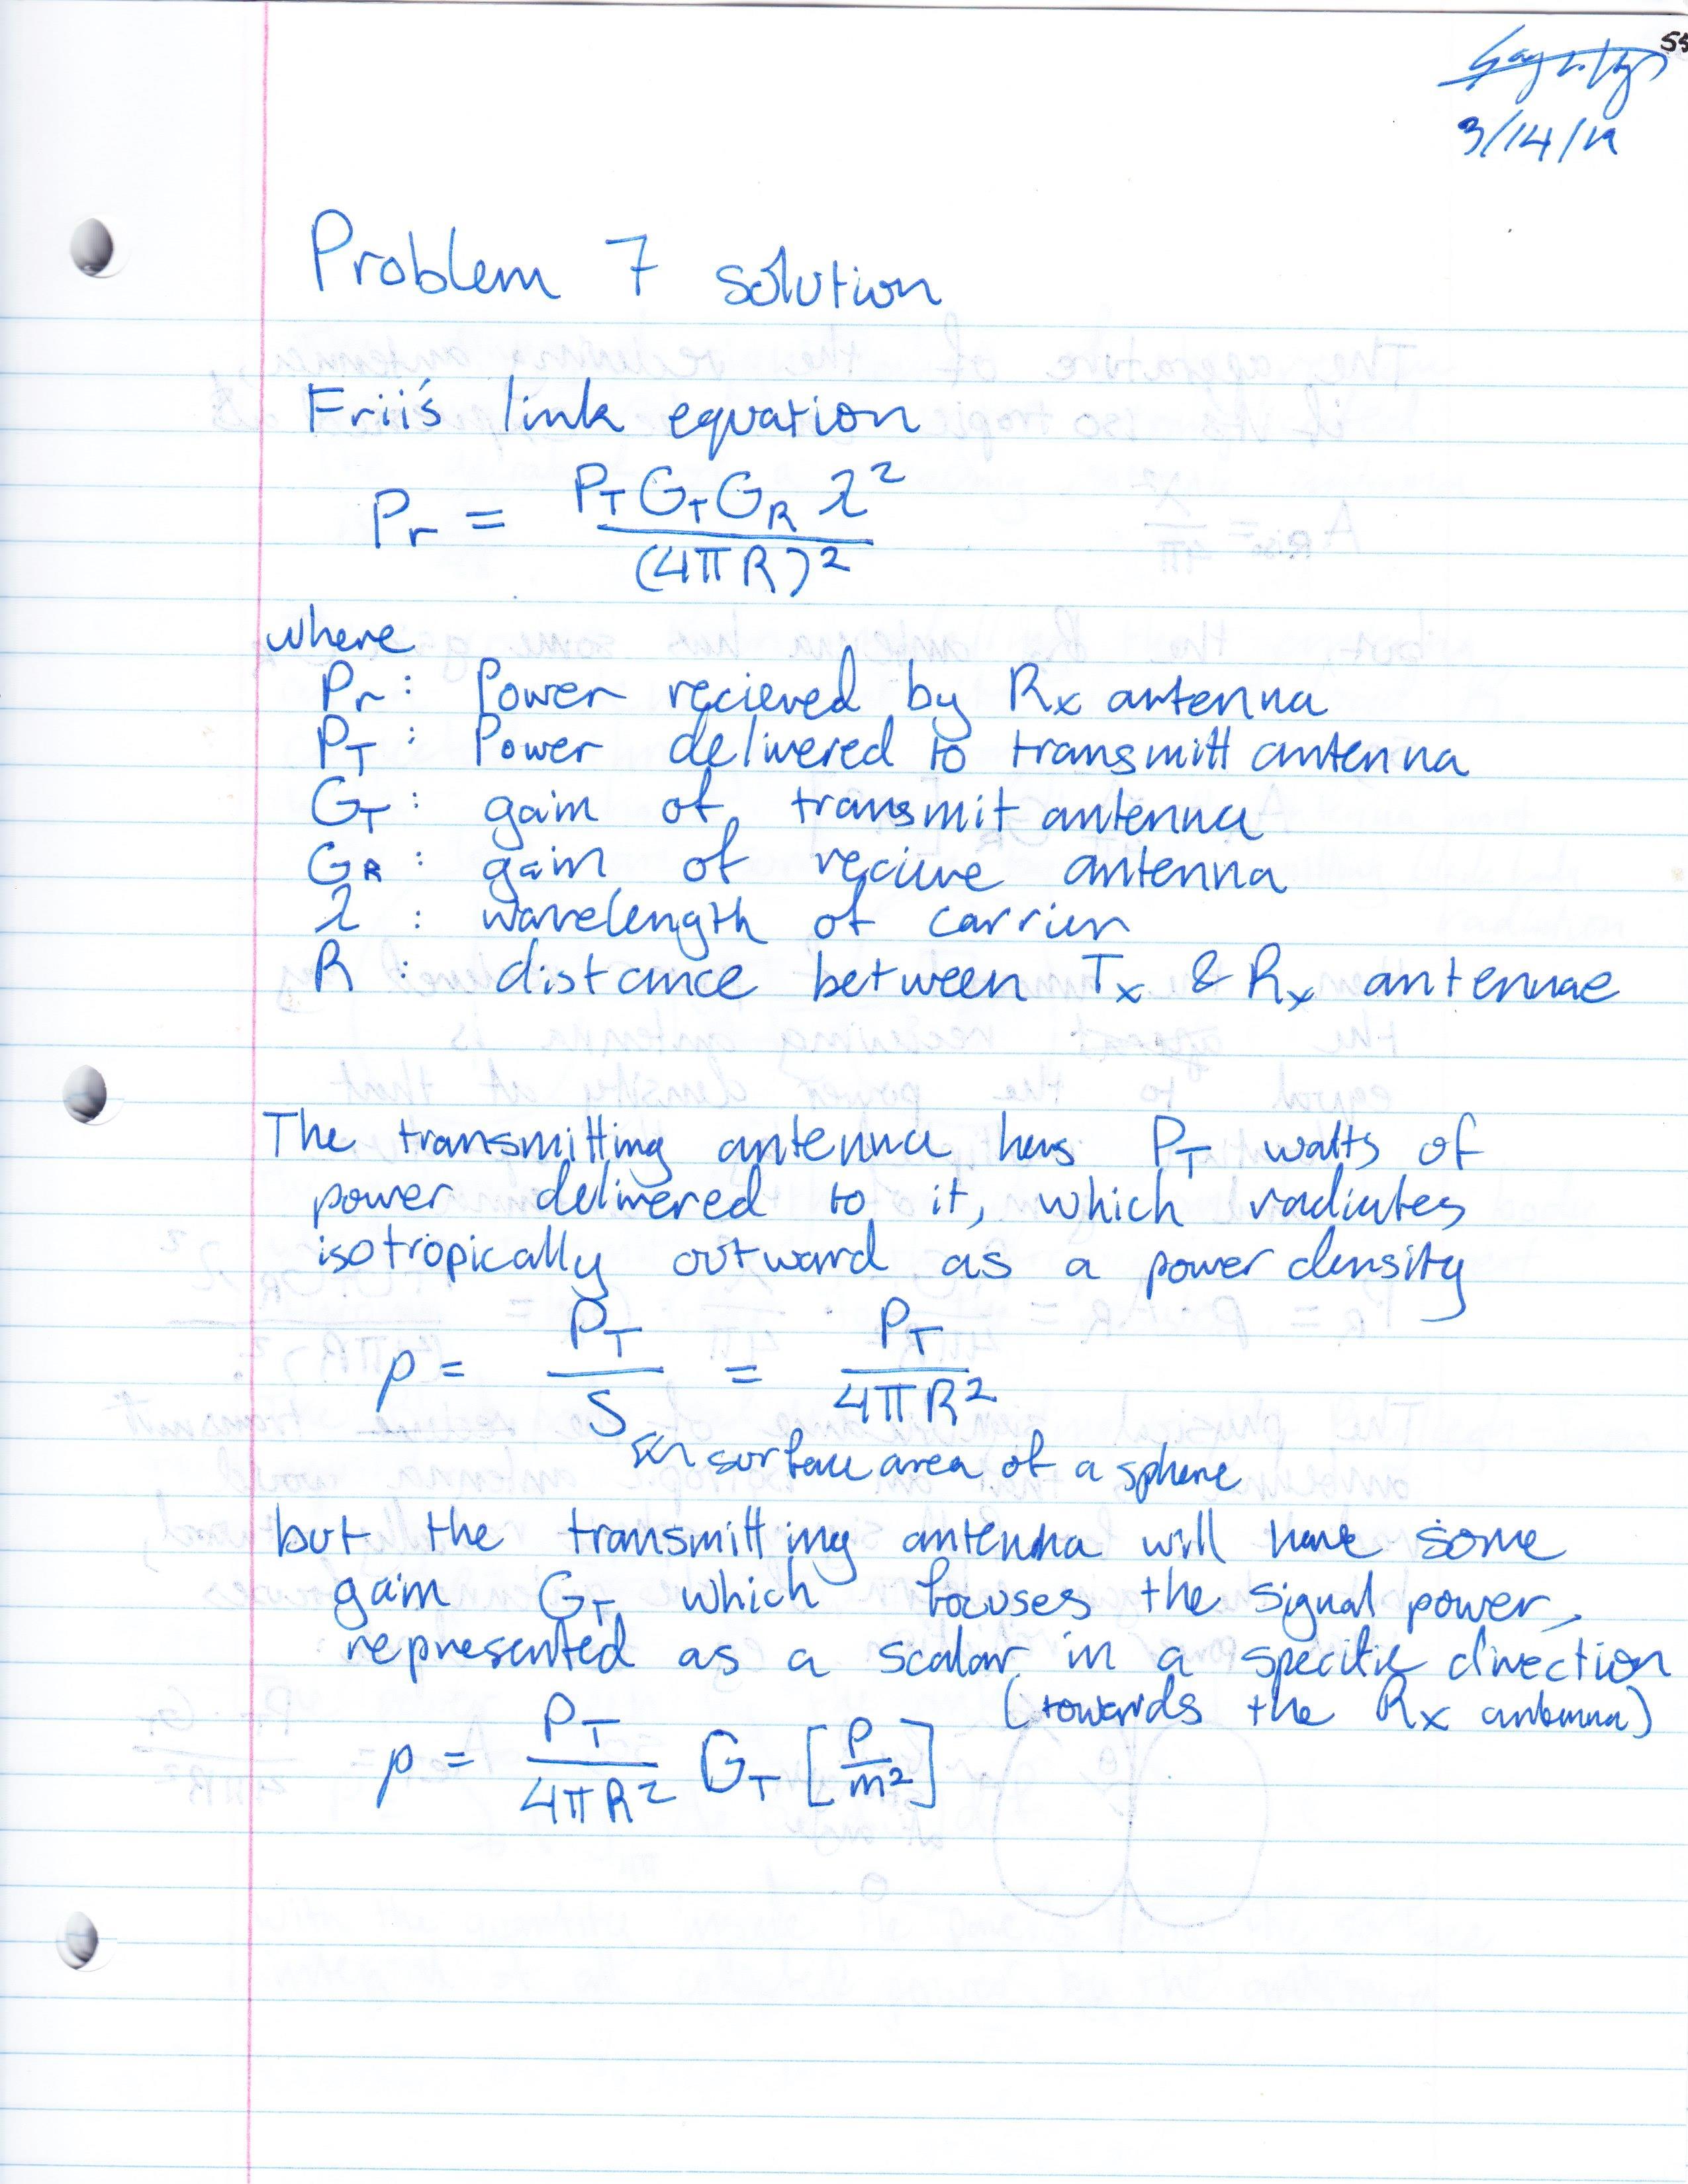 55
3/14/19
Problem 7 solution
Frii's link equation
Pr = PT GT GR λ² / (4πR)²
where
Pr : Power recieved by Rx antenna
PT : Power delivered to transmitt antenna
GT : gain of transmit antenna
GR : gain of recieve antenna
λ : wavelength of carrier
R : distance between Tx & Rx antennae
The transmitting antenna has PT watts of
power delivered to it, which radiates
isotropically outward as a power density
ρ = PT / S = PT / 4πR²
surface area of a sphere
but the transmitting antenna will have some
gain GT which focuses the signal power,
represented as a scalar in a specific direction
(towards the Rx antenna)
ρ = PT / 4πR² GT [P/m²]